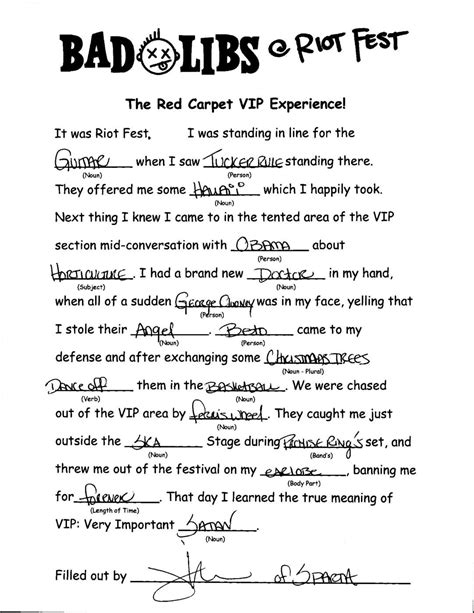 BAD LIBS @ RIOT FEST
The Red Carpet VIP Experience!
It was Riot Fest. I was standing in line for the
GUITAR when I saw TUCKER RULE standing there.
(Noun) (Person)
They offered me some HAWAII which I happily took.
(Noun)
Next thing I knew I came to in the tented area of the VIP
section mid-conversation with OBAMA about
(Person)
HORTICULTURE. I had a brand new Doctor in my hand,
(Subject) (Noun)
when all of a sudden George Clooney was in my face, yelling that
(Person)
I stole their Angel. Beto came to my
(Noun) (Person)
defense and after exchanging some CHRISTMAS TREES
(Noun - Plural)
Dance off them in the BASKETBALL. We were chased
(Verb) (Noun)
out of the VIP area by ferris wheel. They caught me just
(Noun)
outside the SKA Stage during PROMISE RING's set, and
(Noun) (Band's)
threw me out of the festival on my EARLOBE, banning me
(Body Part)
for forever. That day I learned the true meaning of
(Length of Time)
VIP: Very Important SATAN.
(Noun)
Filled out by of SPARTA